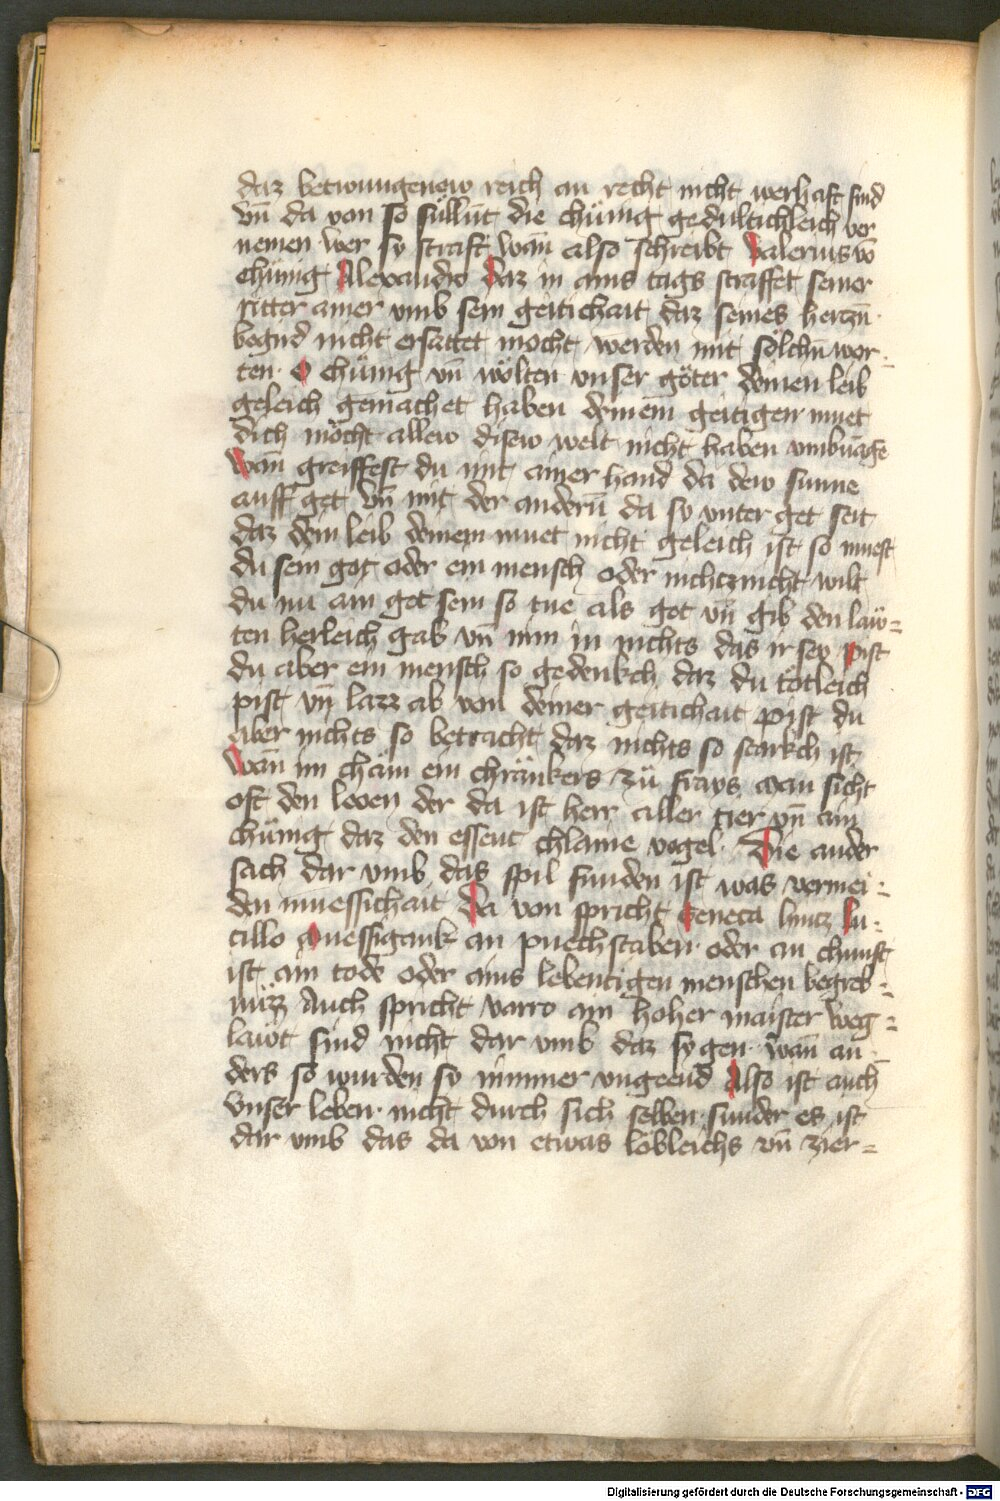 daz betwungenew reich an recht nicht werhaft sind
vn̄ da von so süllūt die chünig gedultichleich ver
nemen wer sy straft wan̄ also schreibt valerius vō
chünig Alexandro Daz in ains tags straffet seiner
ritter ainer vmb sein geitichait daz seines herczn̄
begird nicht ersattet mocht werden mit sölchn̄ wor-
ten · O chünig vn̄ wölten vnser göter deinen leib
geleich gemachet haben deinem geitigen muet
dich möcht allew disew welt nicht haben vmbuāge
Wan̄ greiffest du mit ainer hand da dew sunne
auff get vn̄ mit der anderū da sy vnter get seit
daz dem leib deinem muet nicht geleich ist so muest
du sein got oder ein mensch oder nichtznicht wilt
du nu ain got sein so tue als got vn̄ gib den läw=
ten herleich gab vn̄ nim in nichts das ir sey pist
du aber ein mensch so gedenkch daz du tötleich
pist vn̄ lazz ab von deiner geitichait pist du
aber nichts so betracht daz nichts so starkch ist
Wan̄ im chäm ein chränkers zü frays man sicht
oft den leoen der da ist herr aller tier vn̄ ain
chünig daz den essent chlaine vogel · Die ander
sach dar vmb das spil funden ist was vermei-
den muessichait Da von spricht Seneca hincz Lu-
cillo Muessigank an puechstaben · oder an chunst
ist ain tode oder ains lebentigen menschen begreb-
nüzz Auch spricht varro ain hoher maister Weg=
läwt sind nicht dar vmb daz sy gen · wan̄ an
ders so wurden sy nimmer vngeend Also ist auch
vnser leben · nicht durch sich selben · sunder es ist
dar vmb das da von etwas löbleichs vn̄ zier=
Digitalisierung gefördert durch die Deutsche Forschungsgemeinschaft - DFG